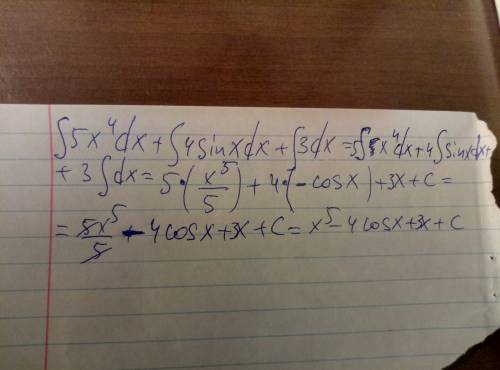 ∫5x⁴dx + ∫4sinxdx + ∫3dx = 5∫x⁴dx + 4∫sinxdx +
+ 3∫dx = 5·(x⁵/5) + 4·(-cosx) + 3x + C =
= 5x⁵/5 - 4cosx + 3x + C = x⁵ - 4cosx + 3x + C